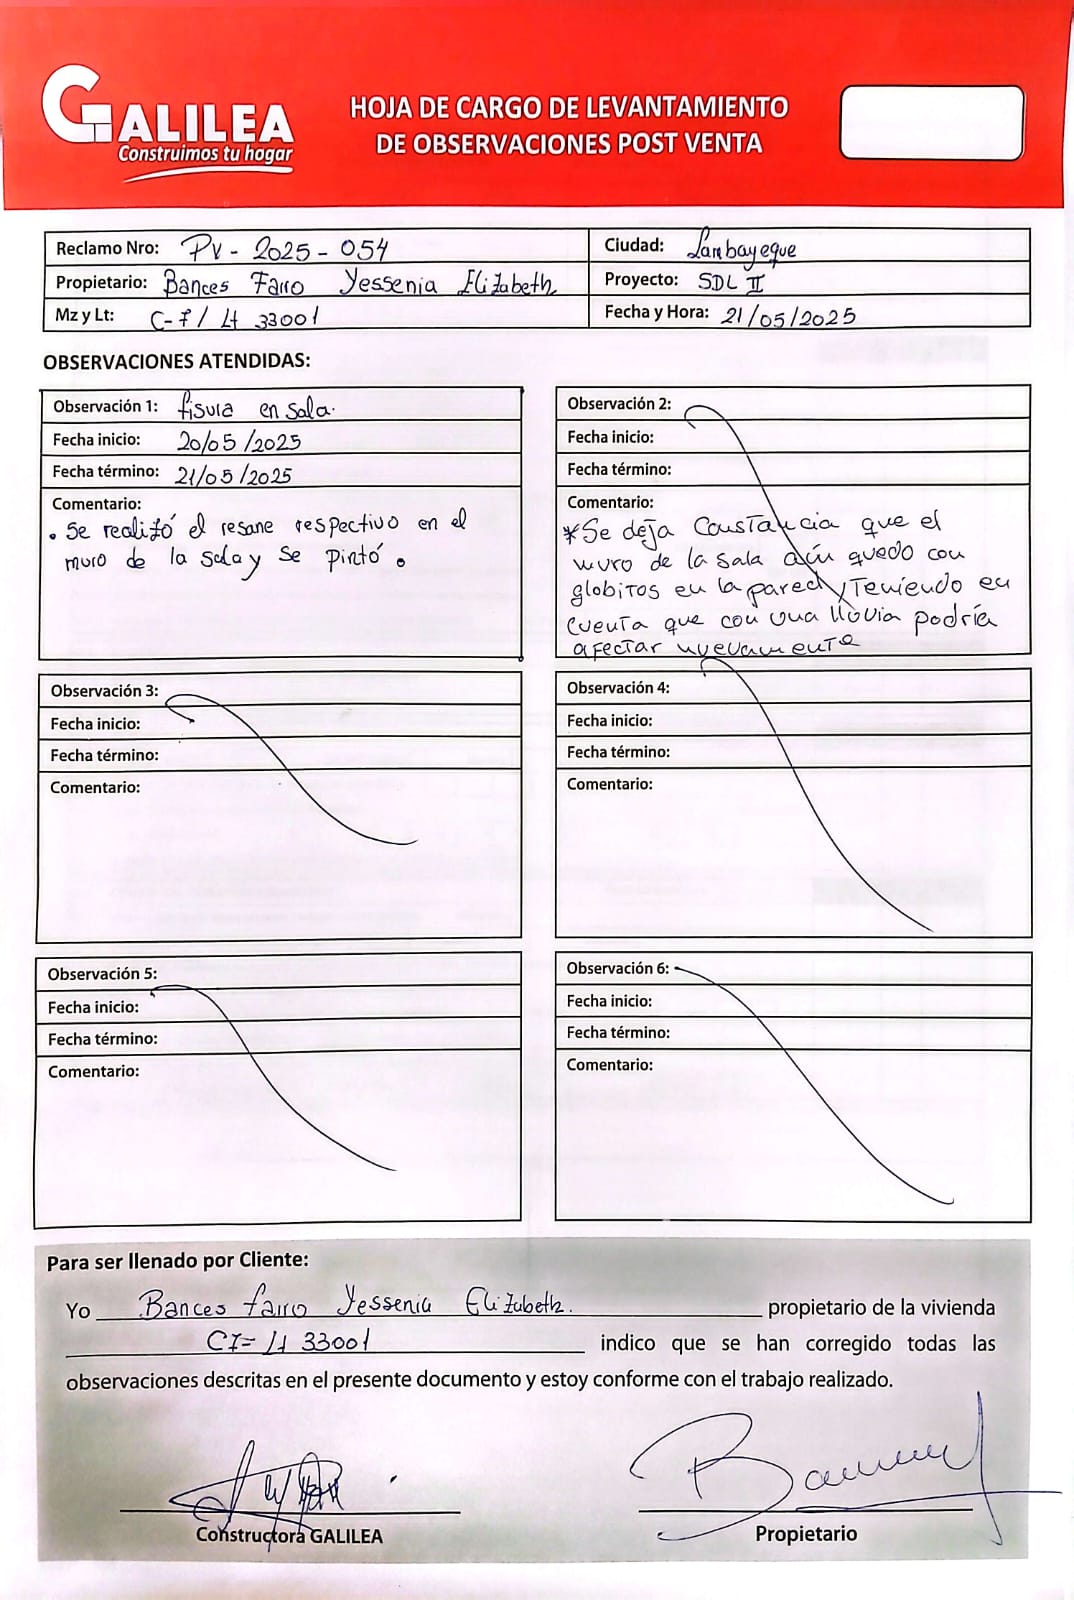 GALILEA
Construimos tu hogar
HOJA DE CARGO DE LEVANTAMIENTO
DE OBSERVACIONES POST VENTA
Reclamo Nro: PV - 2025 - 054
Ciudad: Lambayeque
Propietario: Bances Farro Yessenia Elizabeth
Proyecto: SDL II
Mz y Lt: C-7 / Lt 33001
Fecha y Hora: 21/05/2025
OBSERVACIONES ATENDIDAS:
Observación 1: fisura en sala.
Fecha inicio: 20/05/2025
Fecha término: 21/05/2025
Comentario:
• Se realizó el resane respectivo en el
muro de la sala y se pintó.
Observación 2:
Fecha inicio:
Fecha término:
Comentario:
*Se deja Constancia que el
muro de la sala aún quedo con
globitos en la pared, Teniendo en
cuenta que con una lluvia podría
afectar nuevamente
Observación 3:
Fecha inicio:
Fecha término:
Comentario:
Observación 4:
Fecha inicio:
Fecha término:
Comentario:
Observación 5:
Fecha inicio:
Fecha término:
Comentario:
Observación 6:
Fecha inicio:
Fecha término:
Comentario:
Para ser llenado por Cliente:
Yo Bances farro Yessenia Elizabeth. propietario de la vivienda
C7= Lt 33001 indico que se han corregido todas las
observaciones descritas en el presente documento y estoy conforme con el trabajo realizado.
Constructora GALILEA
Propietario